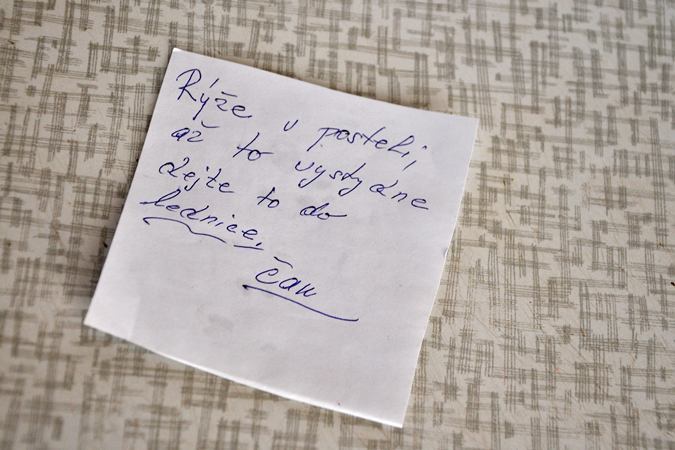 Rýže v posteli,
až to vystydne
dejte to do
lednice,
čau